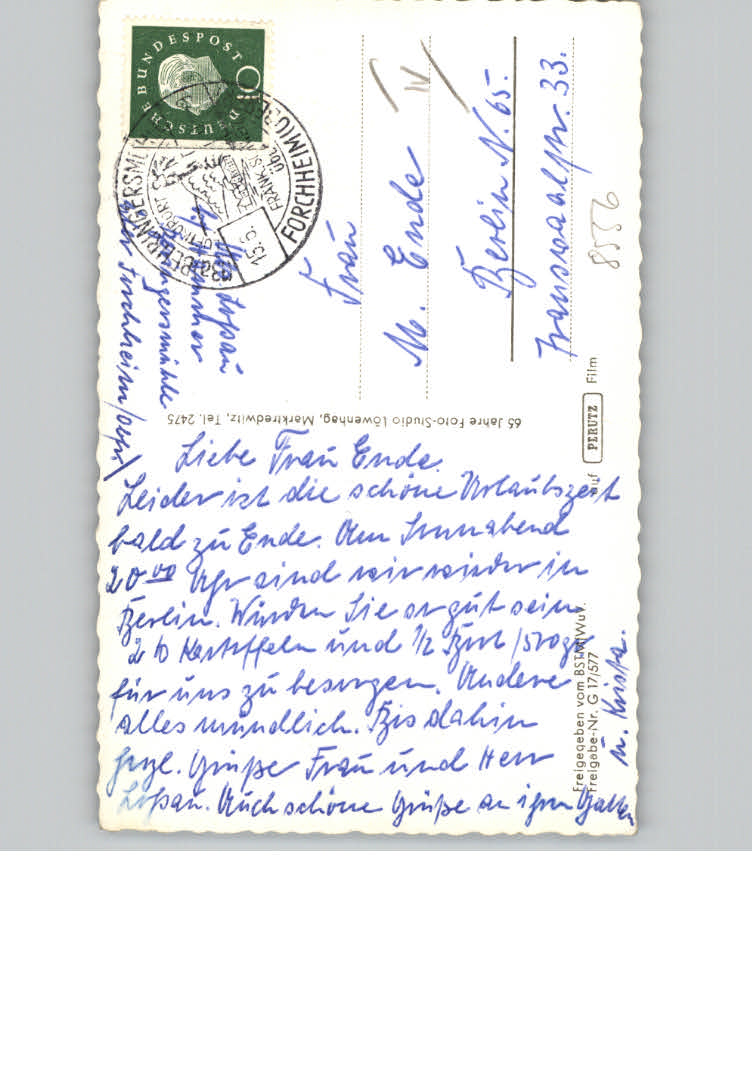 DEUTSCHE BUNDESPOST
BEHRINGERSMÜHLE
ÜBER FORCHHEIM
LUFTKURORT
FRÄNK. SCHWEIZ
15. 9.
Loßau
Behringersmühle
über Forchheim/Obfr.
Frau
M. Ende
Berlin N. 65.
Transvaalstr. 33.
8556
65 Jahre Foto-Studio Löwenhag, Marktredwitz, Tel. 2475
auf PERUTZ Film
Freigegeben vom BSTMfWuV.
Freigabe-Nr. G 17/577
Liebe Frau Ende.
Leider ist die schöne Urlaubszeit
bald zu Ende. Am Sonnabend
20⁰⁰ Uhr sind wir wieder in
Berlin. Würden Sie so gut sein
2 ℔ Kartoffeln und 1/2 Brot /500gr
für uns zu besorgen. Andere
alles mündlich. Bis dahin
herzl. Grüße Frau und Herr
Loßau. Auch schöne Grüße an ihren Gatten
u. Krista.